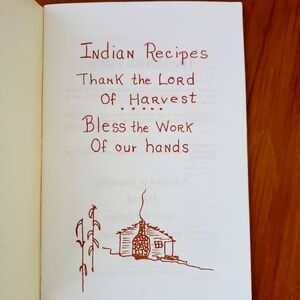 Indian Recipes
Thank the Lord
Of Harvest
Bless the Work
Of our hands